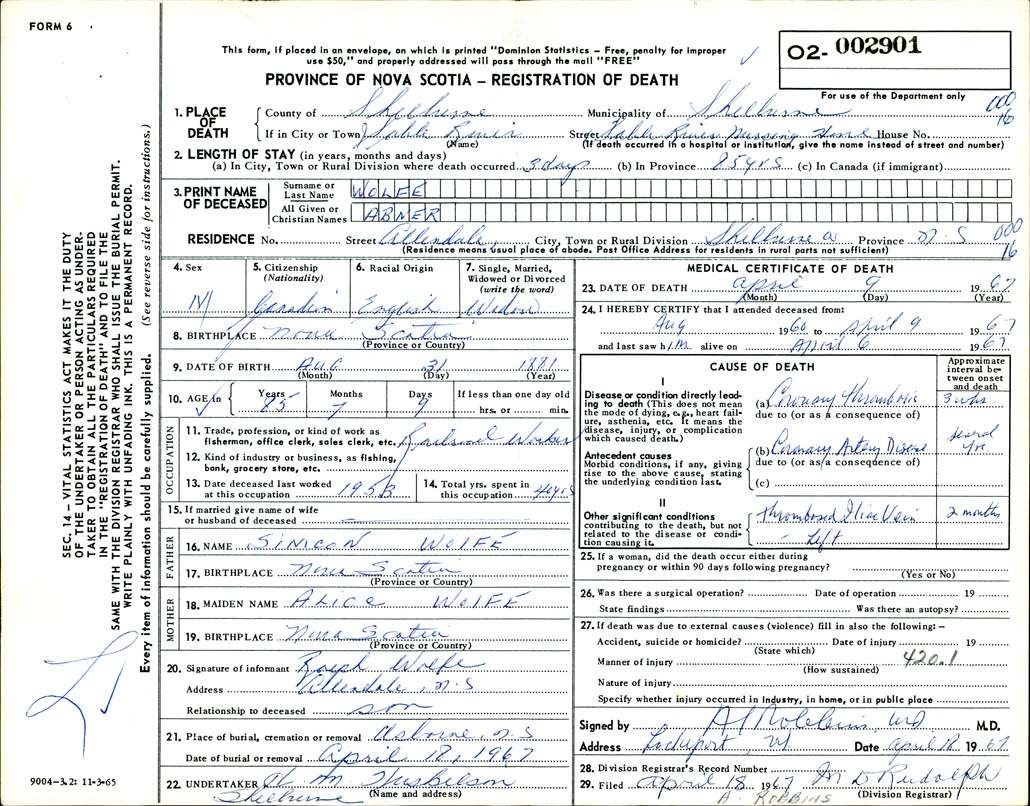 FORM 6
This form, if placed in an envelope, on which is printed "Dominion Statistics – Free, penalty for improper
use $50," and properly addressed will pass through the mail "FREE"
O2- 002901
For use of the Department only
PROVINCE OF NOVA SCOTIA – REGISTRATION OF DEATH
000
16
1. PLACE OF DEATH
County of Shelburne Municipality of Shelburne
If in City or Town Sable River Street Sable River Nursing Home House No.
(Name) (If death occurred in a hospital or institution, give the name instead of street and number)
2. LENGTH OF STAY (in years, months and days)
(a) In City, Town or Rural Division where death occurred 3 days (b) In Province 85 yrs (c) In Canada (if immigrant)
3. PRINT NAME OF DECEASED
Surname or Last Name WOLFE
All Given or Christian Names ABNER
RESIDENCE No. Street Allendale, City, Town or Rural Division Shelburne Province N.S
000
16
(Residence means usual place of abode. Post Office Address for residents in rural parts not sufficient)
4. Sex M
5. Citizenship (Nationality) Canadian
6. Racial Origin English
7. Single, Married, Widowed or Divorced (write the word) Widow
8. BIRTHPLACE Nova Scotia
(Province or Country)
9. DATE OF BIRTH AUG 31 1881
(Month) (Day) (Year)
10. AGE in Years 85 Months 7 Days 9 If less than one day old
hrs. or min.
OCCUPATION
11. Trade, profession, or kind of work as
fisherman, office clerk, sales clerk, etc. Railroad Worker
12. Kind of industry or business, as fishing,
bank, grocery store, etc.
13. Date deceased last worked
at this occupation 1953
14. Total yrs. spent in
this occupation 40 yrs
15. If married give name of wife
or husband of deceased
FATHER
16. NAME SIMEON WOLFE
17. BIRTHPLACE Nova Scotia
(Province or Country)
MOTHER
18. MAIDEN NAME ALICE WOLFE
19. BIRTHPLACE Nova Scotia
(Province or Country)
20. Signature of informant Ralph Wolfe
Address Allendale, N.S
Relationship to deceased son
21. Place of burial, cremation or removal Osborne, N.S
Date of burial or removal April 18, 1967
22. UNDERTAKER
Shelburne (Name and address)
MEDICAL CERTIFICATE OF DEATH
23. DATE OF DEATH April 9 1967
(Month) (Day) (Year)
24. I HEREBY CERTIFY that I attended deceased from:
Aug 1960 to April 9 1967
and last saw him alive on April 6 1967
CAUSE OF DEATH
Approximate interval between onset and death
I
Disease or condition directly leading to death (This does not mean the mode of dying, e.g., heart failure, asthenia, etc. It means the disease, injury, or complication which caused death.)
(a) Coronary Thrombosis 3 wks.
due to (or as a consequence of)
Antecedent causes
Morbid conditions, if any, giving rise to the above cause, stating the underlying condition last.
(b) Coronary Artery Disease several yrs.
due to (or as a consequence of)
(c)
II
Other significant conditions
contributing to the death, but not related to the disease or condition causing it.
Thrombosed Iliac Vein 2 months
- Left
25. If a woman, did the death occur either during
pregnancy or within 90 days following pregnancy?
(Yes or No)
26. Was there a surgical operation? Date of operation 19
State findings Was there an autopsy?
27. If death was due to external causes (violence) fill in also the following: –
Accident, suicide or homicide? Date of injury 19
(State which)
Manner of injury 420.1
(How sustained)
Nature of injury
Specify whether injury occurred in industry, in home, or in public place
Signed by M.D.
Address Lockeport, NS Date April 18 1967
28. Division Registrar's Record Number
29. Filed April 18 1967 M D Rudolph
A. ROBBINS (Division Registrar)
SEC. 14 – VITAL STATISTICS ACT MAKES IT THE DUTY
OF THE UNDERTAKER OR PERSON ACTING AS UNDER-
TAKER TO OBTAIN ALL THE PARTICULARS REQUIRED
IN THE "REGISTRATION OF DEATH" AND TO FILE THE
SAME WITH THE DIVISION REGISTRAR WHO SHALL ISSUE THE BURIAL PERMIT.
WRITE PLAINLY WITH UNFADING INK. THIS IS A PERMANENT RECORD.
Every item of information should be carefully supplied. (See reverse side for instructions.)
9004–3.2: 11-3-65